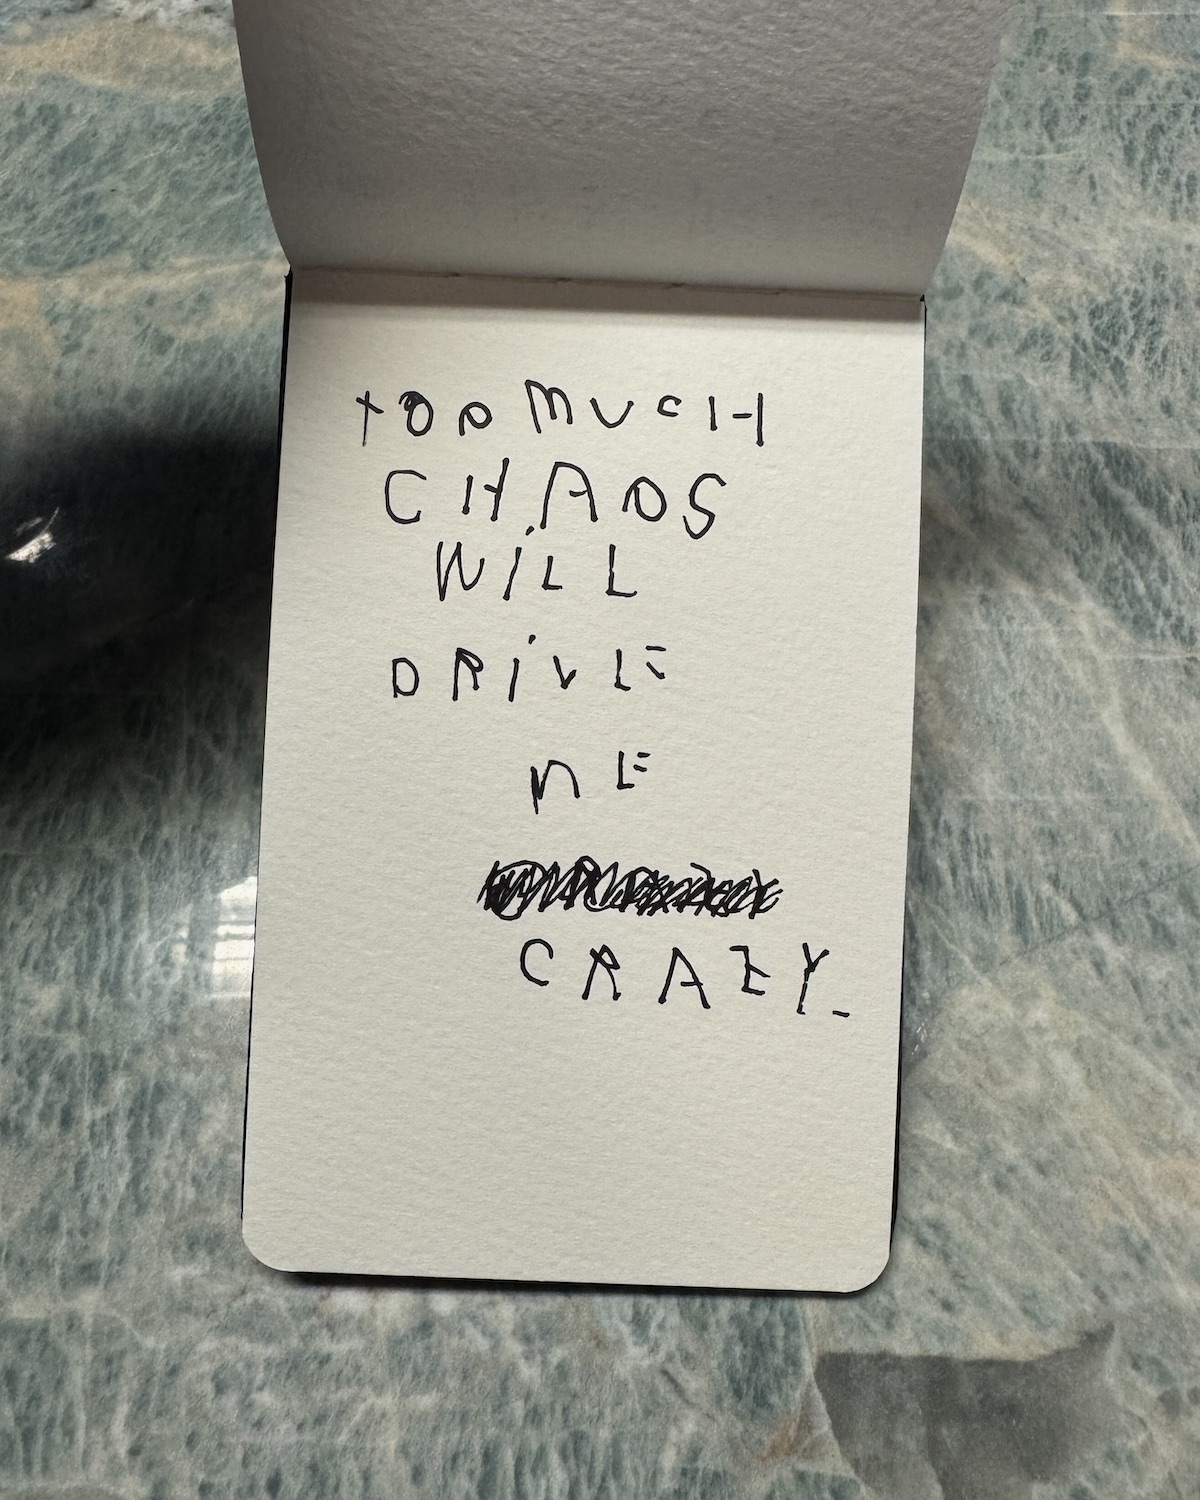 tOO MUCH
CHAOS
WiLL
DRiVE
ME
CRAZY.